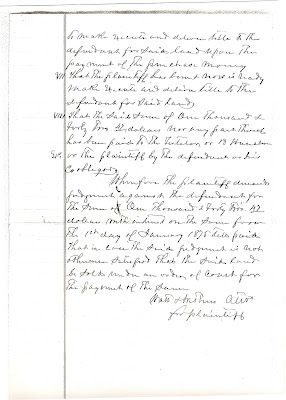 to make execute and deliver title to the
defendant for said land upon the
payment of the purchase money
VII That the plaintiff has been & now is ready
make execute and deliver title to the
defendant for said land
VIII That the said sum of One thousand &
forty two dollars nor any part thereof
has been paid to the or B
or the plaintiff by the defendant or his
Co obligors
Wherefore the plaintiff demands
judgment against the defendants for
the sum of One Thousand & forty two
dollars with interest on the same from
the 1st day of January 1875 till paid
That in case the said judgment is not
otherwise satisfied that the said land
be sold under an order of court for
the payment of the same
Attys
for plaintiff